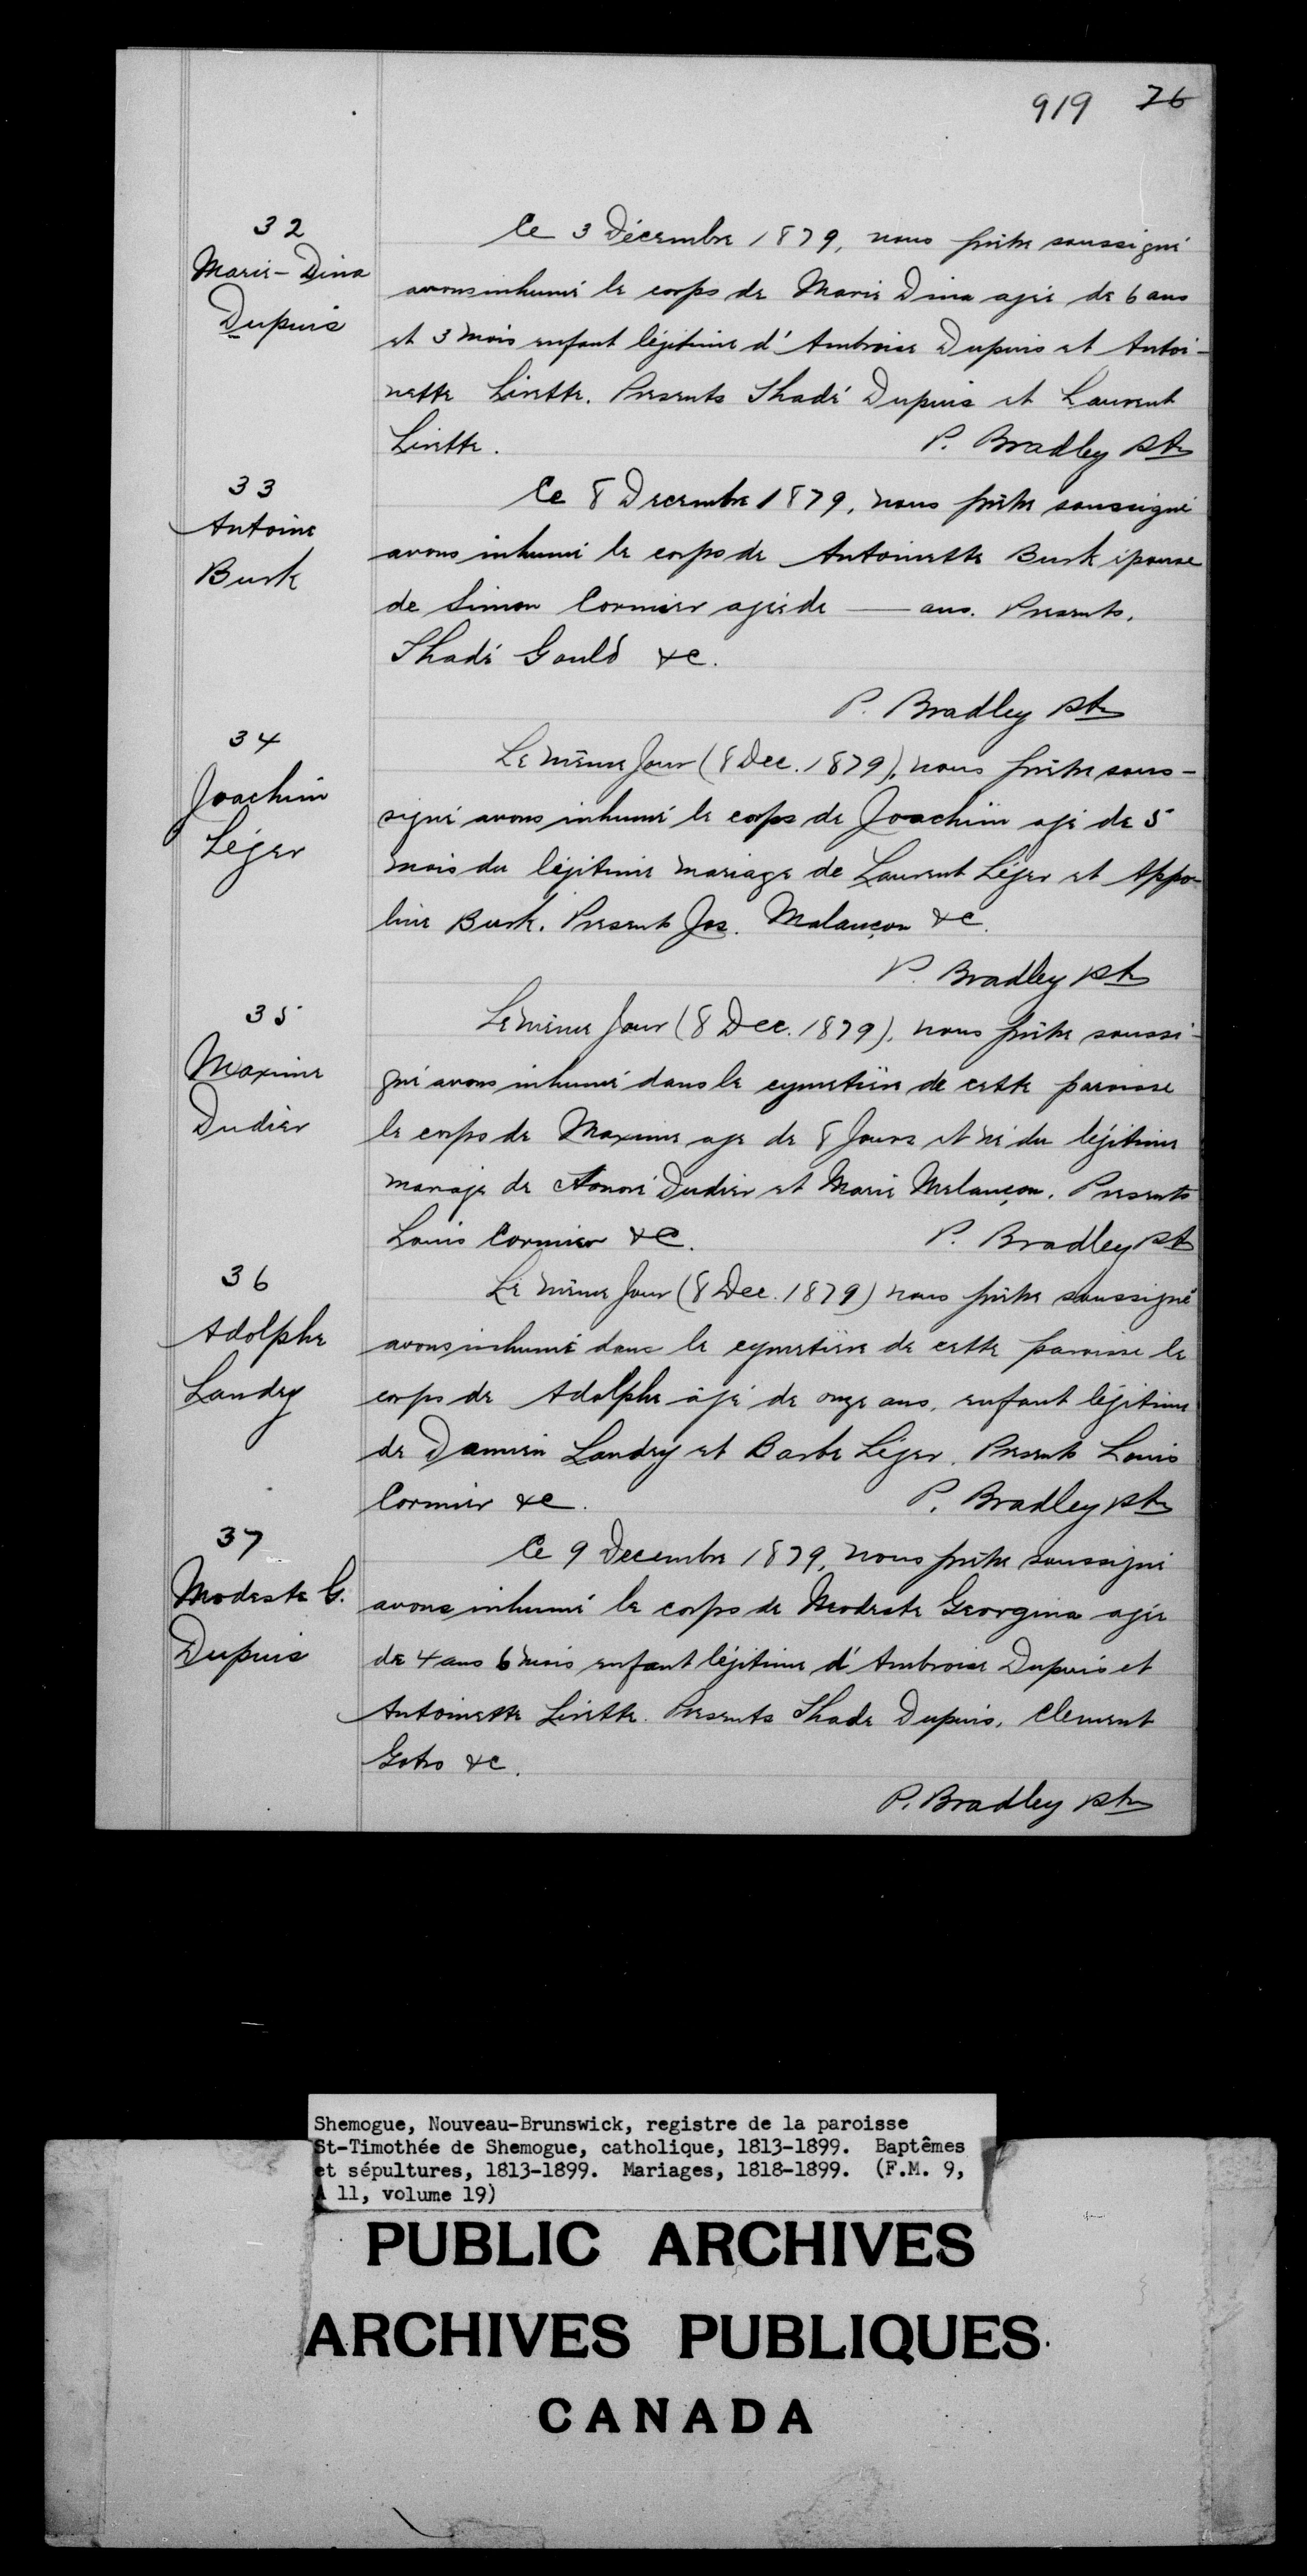 919 76
32
Marie-Dina
Dupuis
Ce 3 Décembre 1879, nous prêtre soussigné
avons inhumé le corps de Marie Dina agée de 6 ans
et 3 mois enfant légitime d'Ambroise Dupuis et Antoi-
nette Lirette. Presents Thadé Dupuis et Laurent
Lirette. P. Bradley ptr
33
Antoine
Burk
Ce 8 Decembre 1879, nous prêtre soussigné
avons inhumé le corps de Antoinette Burk épouse
de Simon Cormier agée de — ans. Presents,
Thadé Gould &c.
P. Bradley ptr
34
Joachim
Léger
Le même Jour (8 Dec. 1879), nous prêtre sous-
signé avons inhumé le corps de Joachim agé de 5
mois du légitime mariage de Laurent Léger et Appo-
line Burk. Presents Jos. Malançon &c.
P. Bradley ptr
35
Maxime
Dudier
Le même Jour (8 Dec. 1879), nous prêtre soussi-
gné avons inhumé dans le cymetière de cette paroisse
le corps de Maxime age de 8 Jours et né du légitime
mariage de Honoré Dudier et Marie Melançon. Presents
Louis Cormier &c. P. Bradley ptr
36
Adolphe
Landry
Le même Jour (8 Dec. 1879) nous prêtre soussigné
avons inhumé dans le cymetière de cette paroisse le
corps de Adolphe âgé de onze ans, enfant légitime
de Damien Landry et Barbe Léger. Presents Louis
Cormier &c. P. Bradley ptr
37
Modeste G.
Dupuis
Ce 9 Decembre 1879, nous prêtre soussigné
avons inhumé le corps de Modeste Georgina agée
de 4 ans 6 mois enfant légitime d'Ambroise Dupuis et
Antoinette Lirette. Presents Thade Dupuis, Clement
Gotro &c.
P. Bradley ptr
Shemogue, Nouveau-Brunswick, registre de la paroisse
St-Timothée de Shemogue, catholique, 1813-1899. Baptêmes
et sépultures, 1813-1899. Mariages, 1818-1899. (F.M. 9,
A 11, volume 19)
PUBLIC ARCHIVES
ARCHIVES PUBLIQUES
CANADA